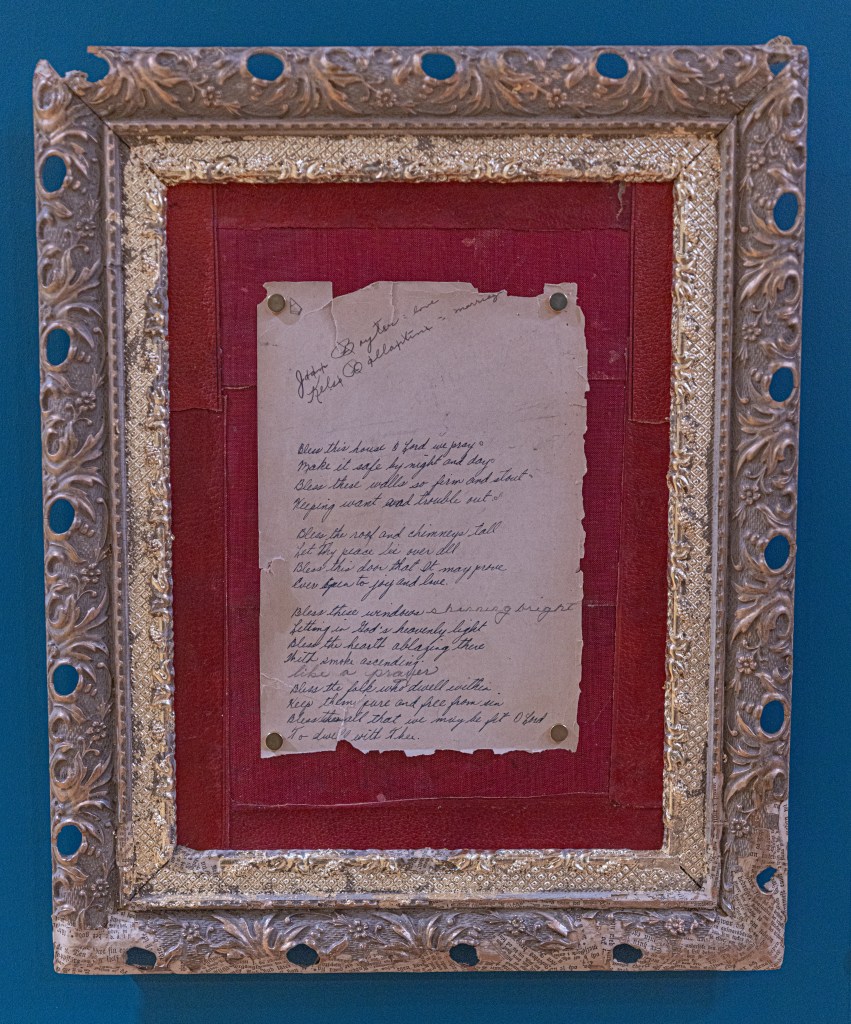 Bless this house O Lord we pray
Make it safe by night and day
Bless these walls so firm and stout
Keeping want and trouble out
Bless the roof and chimneys tall
Let Thy peace lie over all
Bless this door that it may prove
Ever open to joy and love.
Bless these windows shinning bright
Letting in God's heavenly light
Bless the hearth ablazing there
With smoke ascending
like a prayer
Bless the folk who dwell within
Keep them pure and free from sin
Bless them all that we may be fit O Lord
To dwell with Thee.